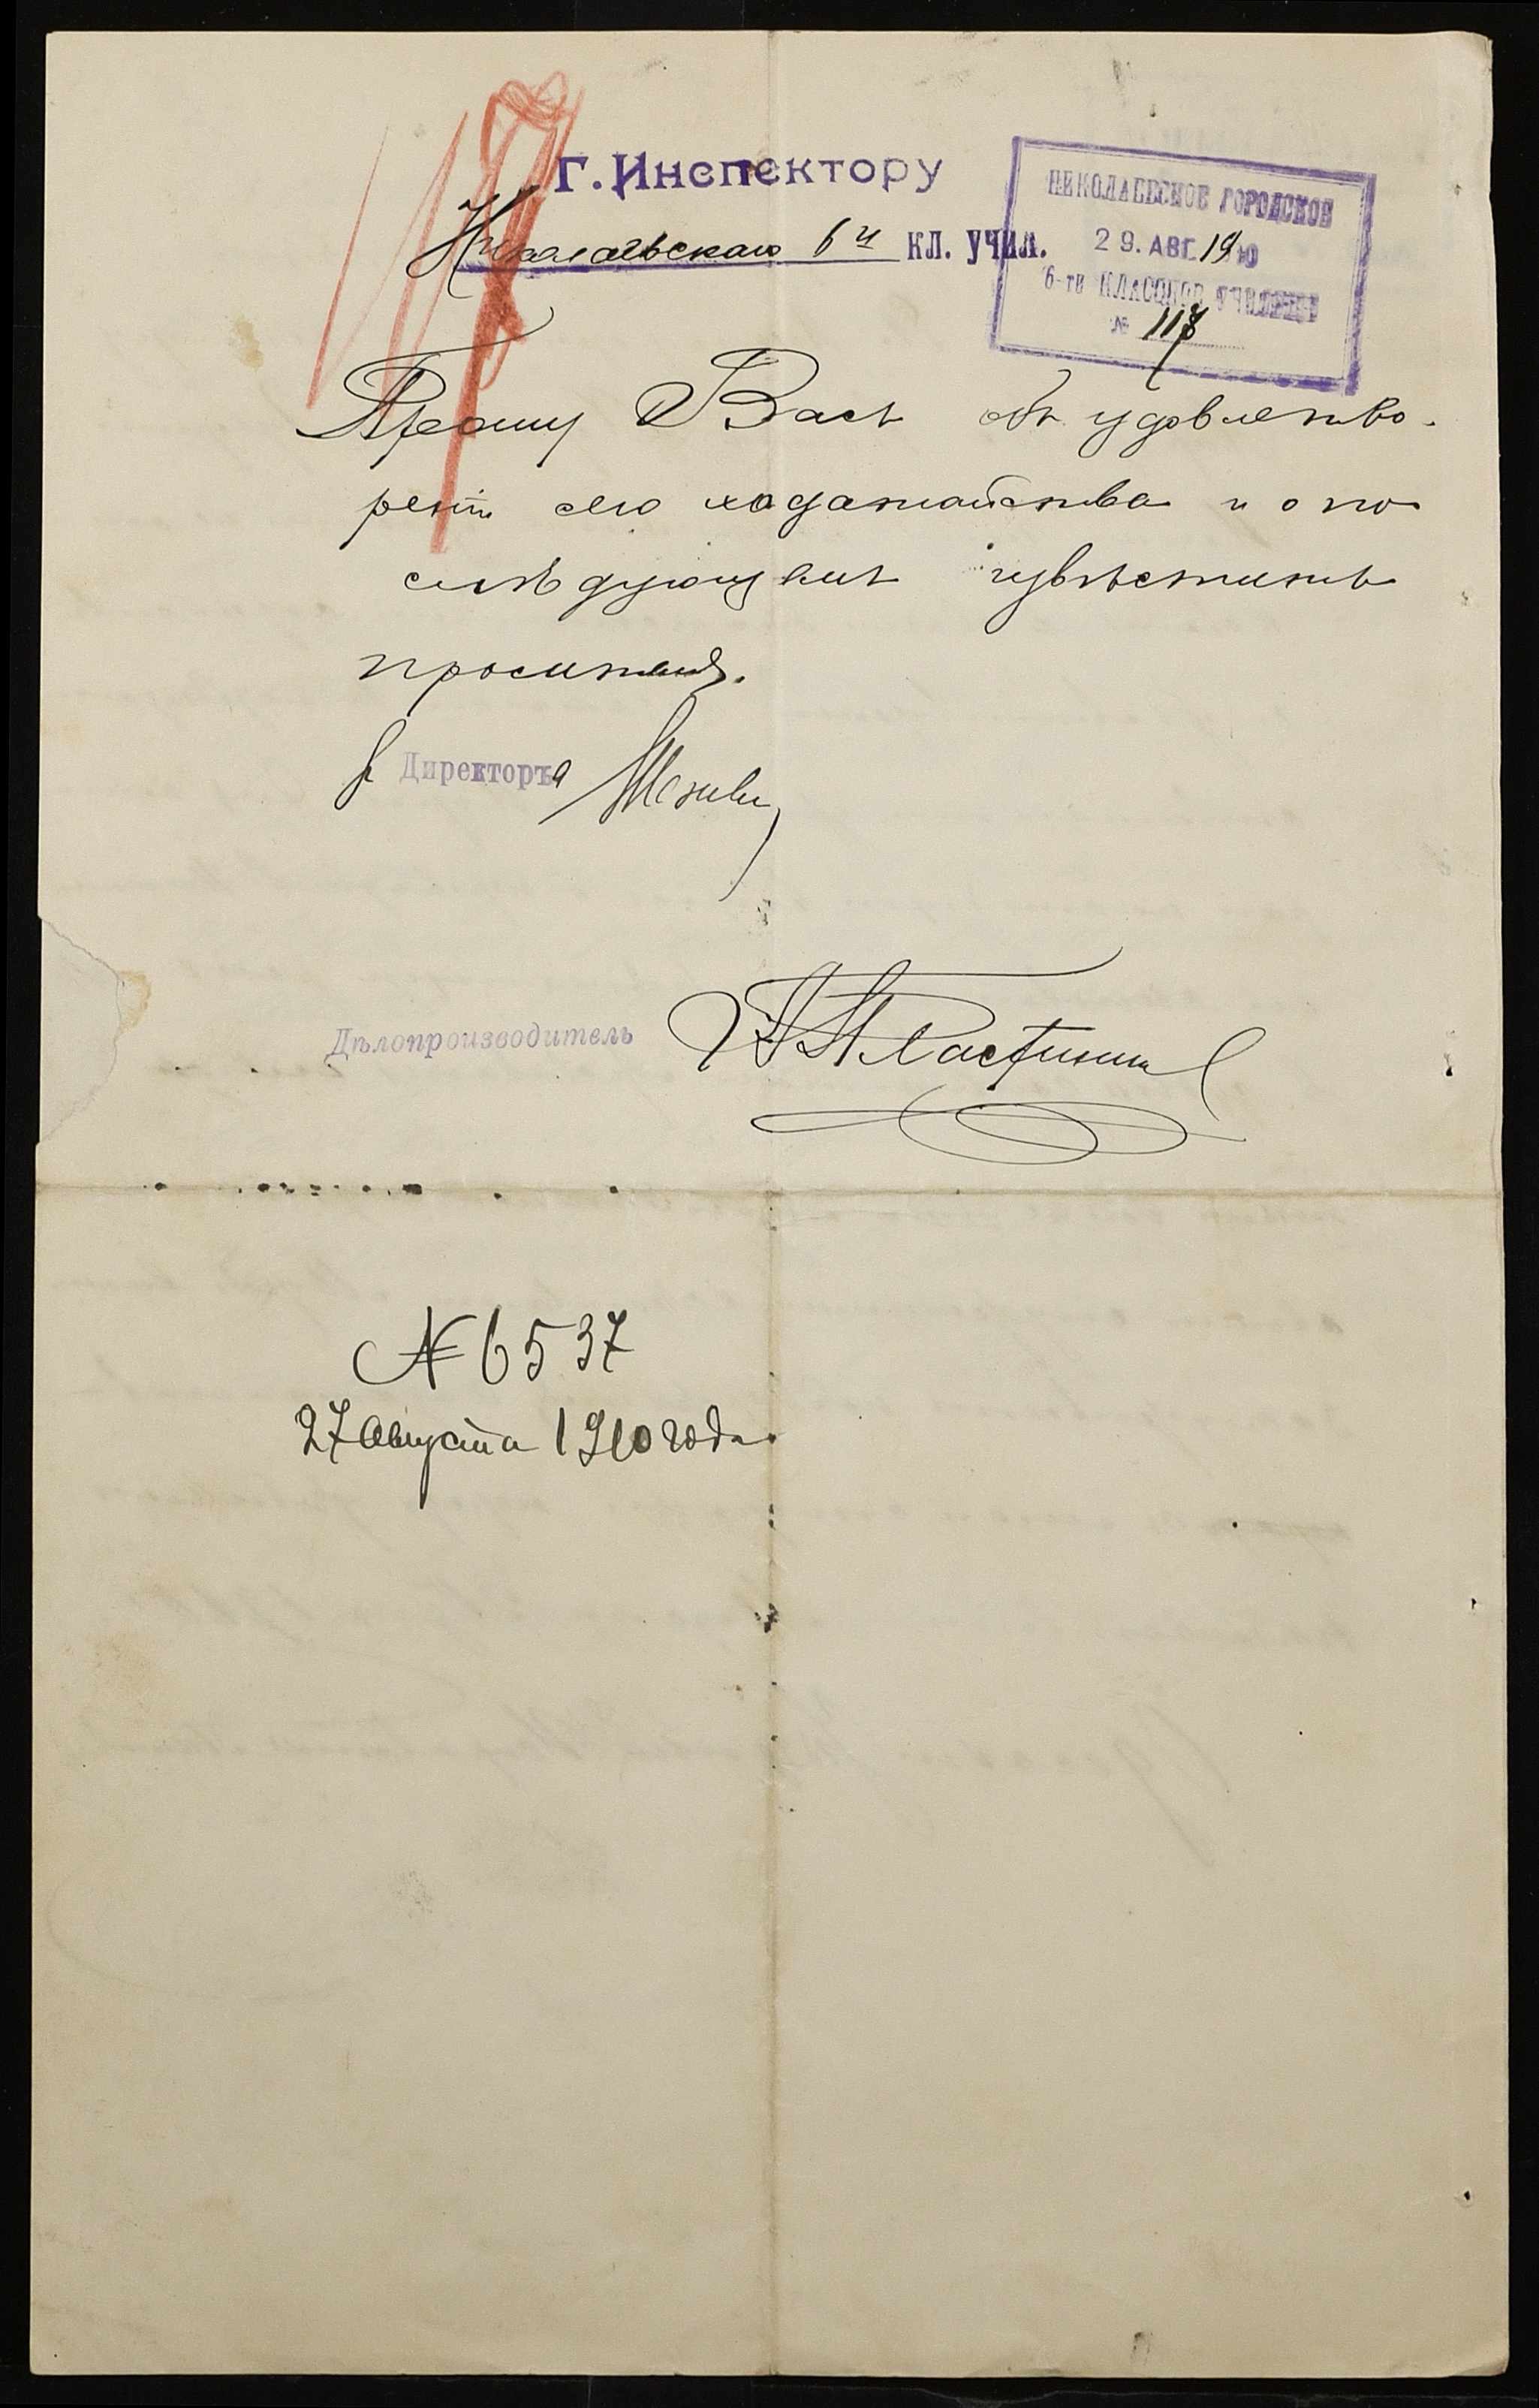 117
Г. Инспектору
Николаевскаго 6 и кл. учил.
НИКОЛАЕВСКОЕ ГОРОДСКОЕ
29. АВГ. 1910
6-ти КЛАССНОЕ УЧИЛИЩЕ
№ 117
Прошу Васъ объ удовлетво-
реніи сего ходатайства и о по
слѣдующемъ извѣстить
просителя.
Директора
Дѣлопроизводитель Пластининъ
№ 6537
27 Августа 1910 года